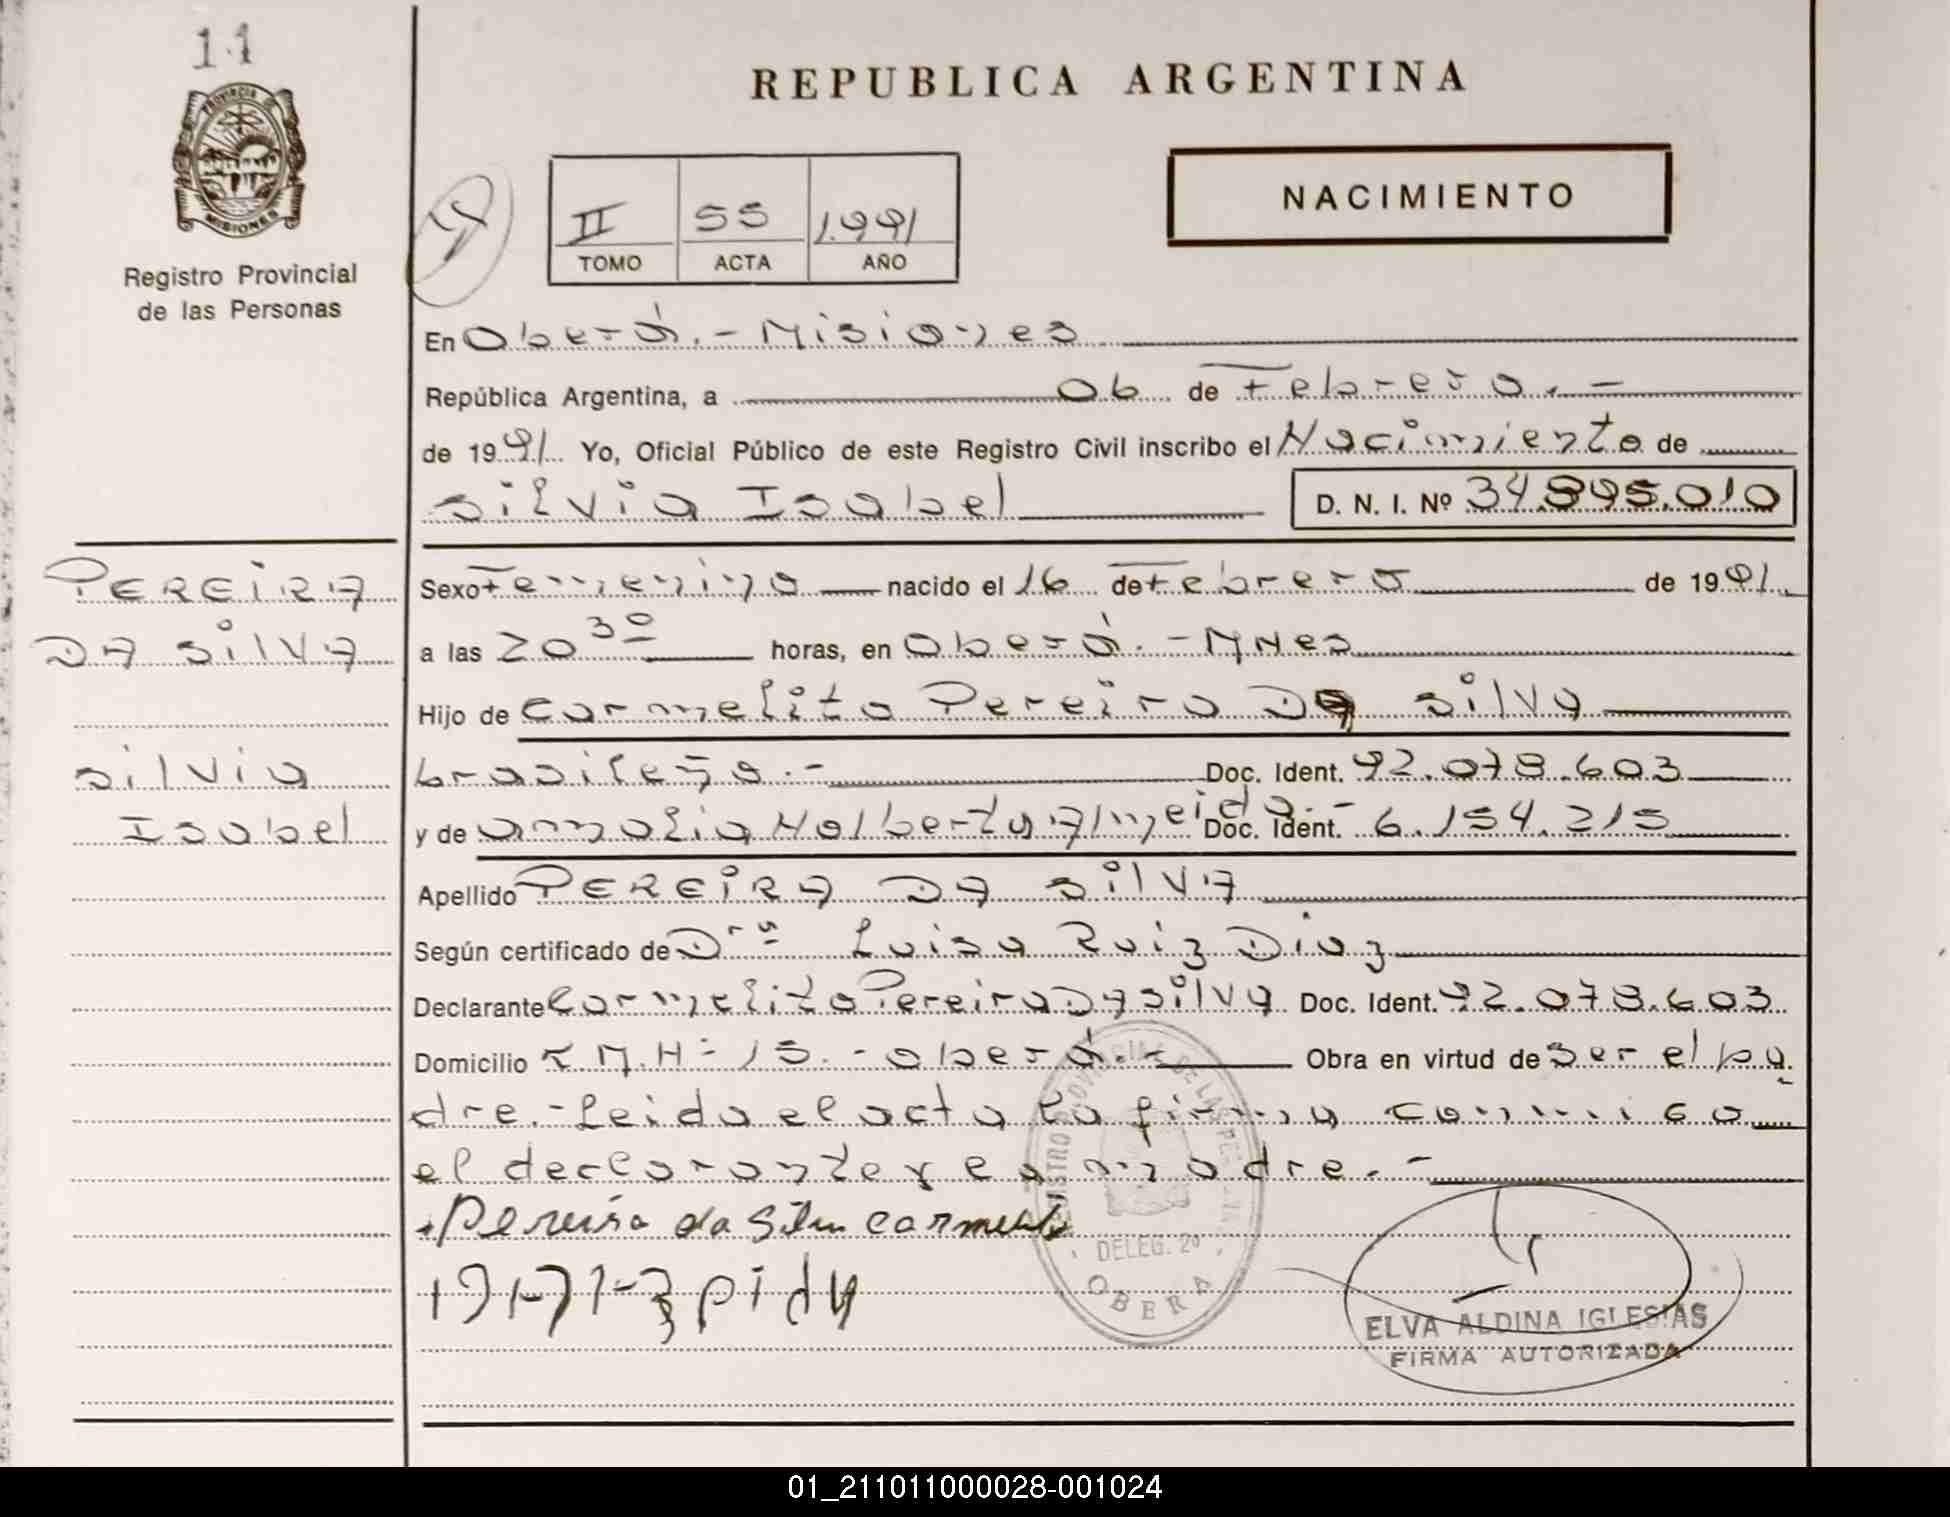 11
PROVINCIA DE
MISIONES
Registro Provincial
de las Personas
REPUBLICA ARGENTINA
NACIMIENTO
II 55 1.991
TOMO ACTA AÑO
En Oberá.- Misiones
República Argentina, a 06 de Febrero.-
de 1991 Yo, Oficial Público de este Registro Civil inscribo el Nacimiento de
Silvia Isabel D. N. I. Nº 34.895.010
PEREIRA
DA SILVA
Silvia
Isabel
Sexo Femenino nacido el 16 de Febrero de 1991
a las 20 30 horas, en Oberá.- Mnes
Hijo de Carmelito Pereira Da Silva
brasileño.- Doc. Ident. 92.078.603
y de Almeida.- Doc. Ident. 6.154.215
Apellido PEREIRA DA SILVA
Según certificado de Dra Luisa Ruiz Diaz
Declarante Carmelito Pereira Da Silva Doc. Ident. 92.078.603
Domicilio - 15.- Oberá.- Obra en virtud de ser el pa
dre.- Leida el acta la firma conmigo
el declarante y la madre.-
Pereira da Silva Carmelito
DELEG. 2º
OBERA
ELVA ALDINA IGLESIAS
FIRMA AUTORIZADA
01_211011000028-001024